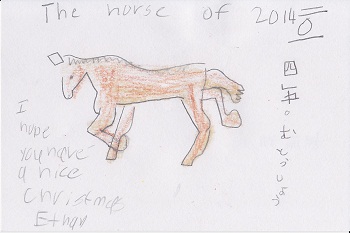 The horse of 2014
I
hope
you have
a nice
Christmas
Ethan